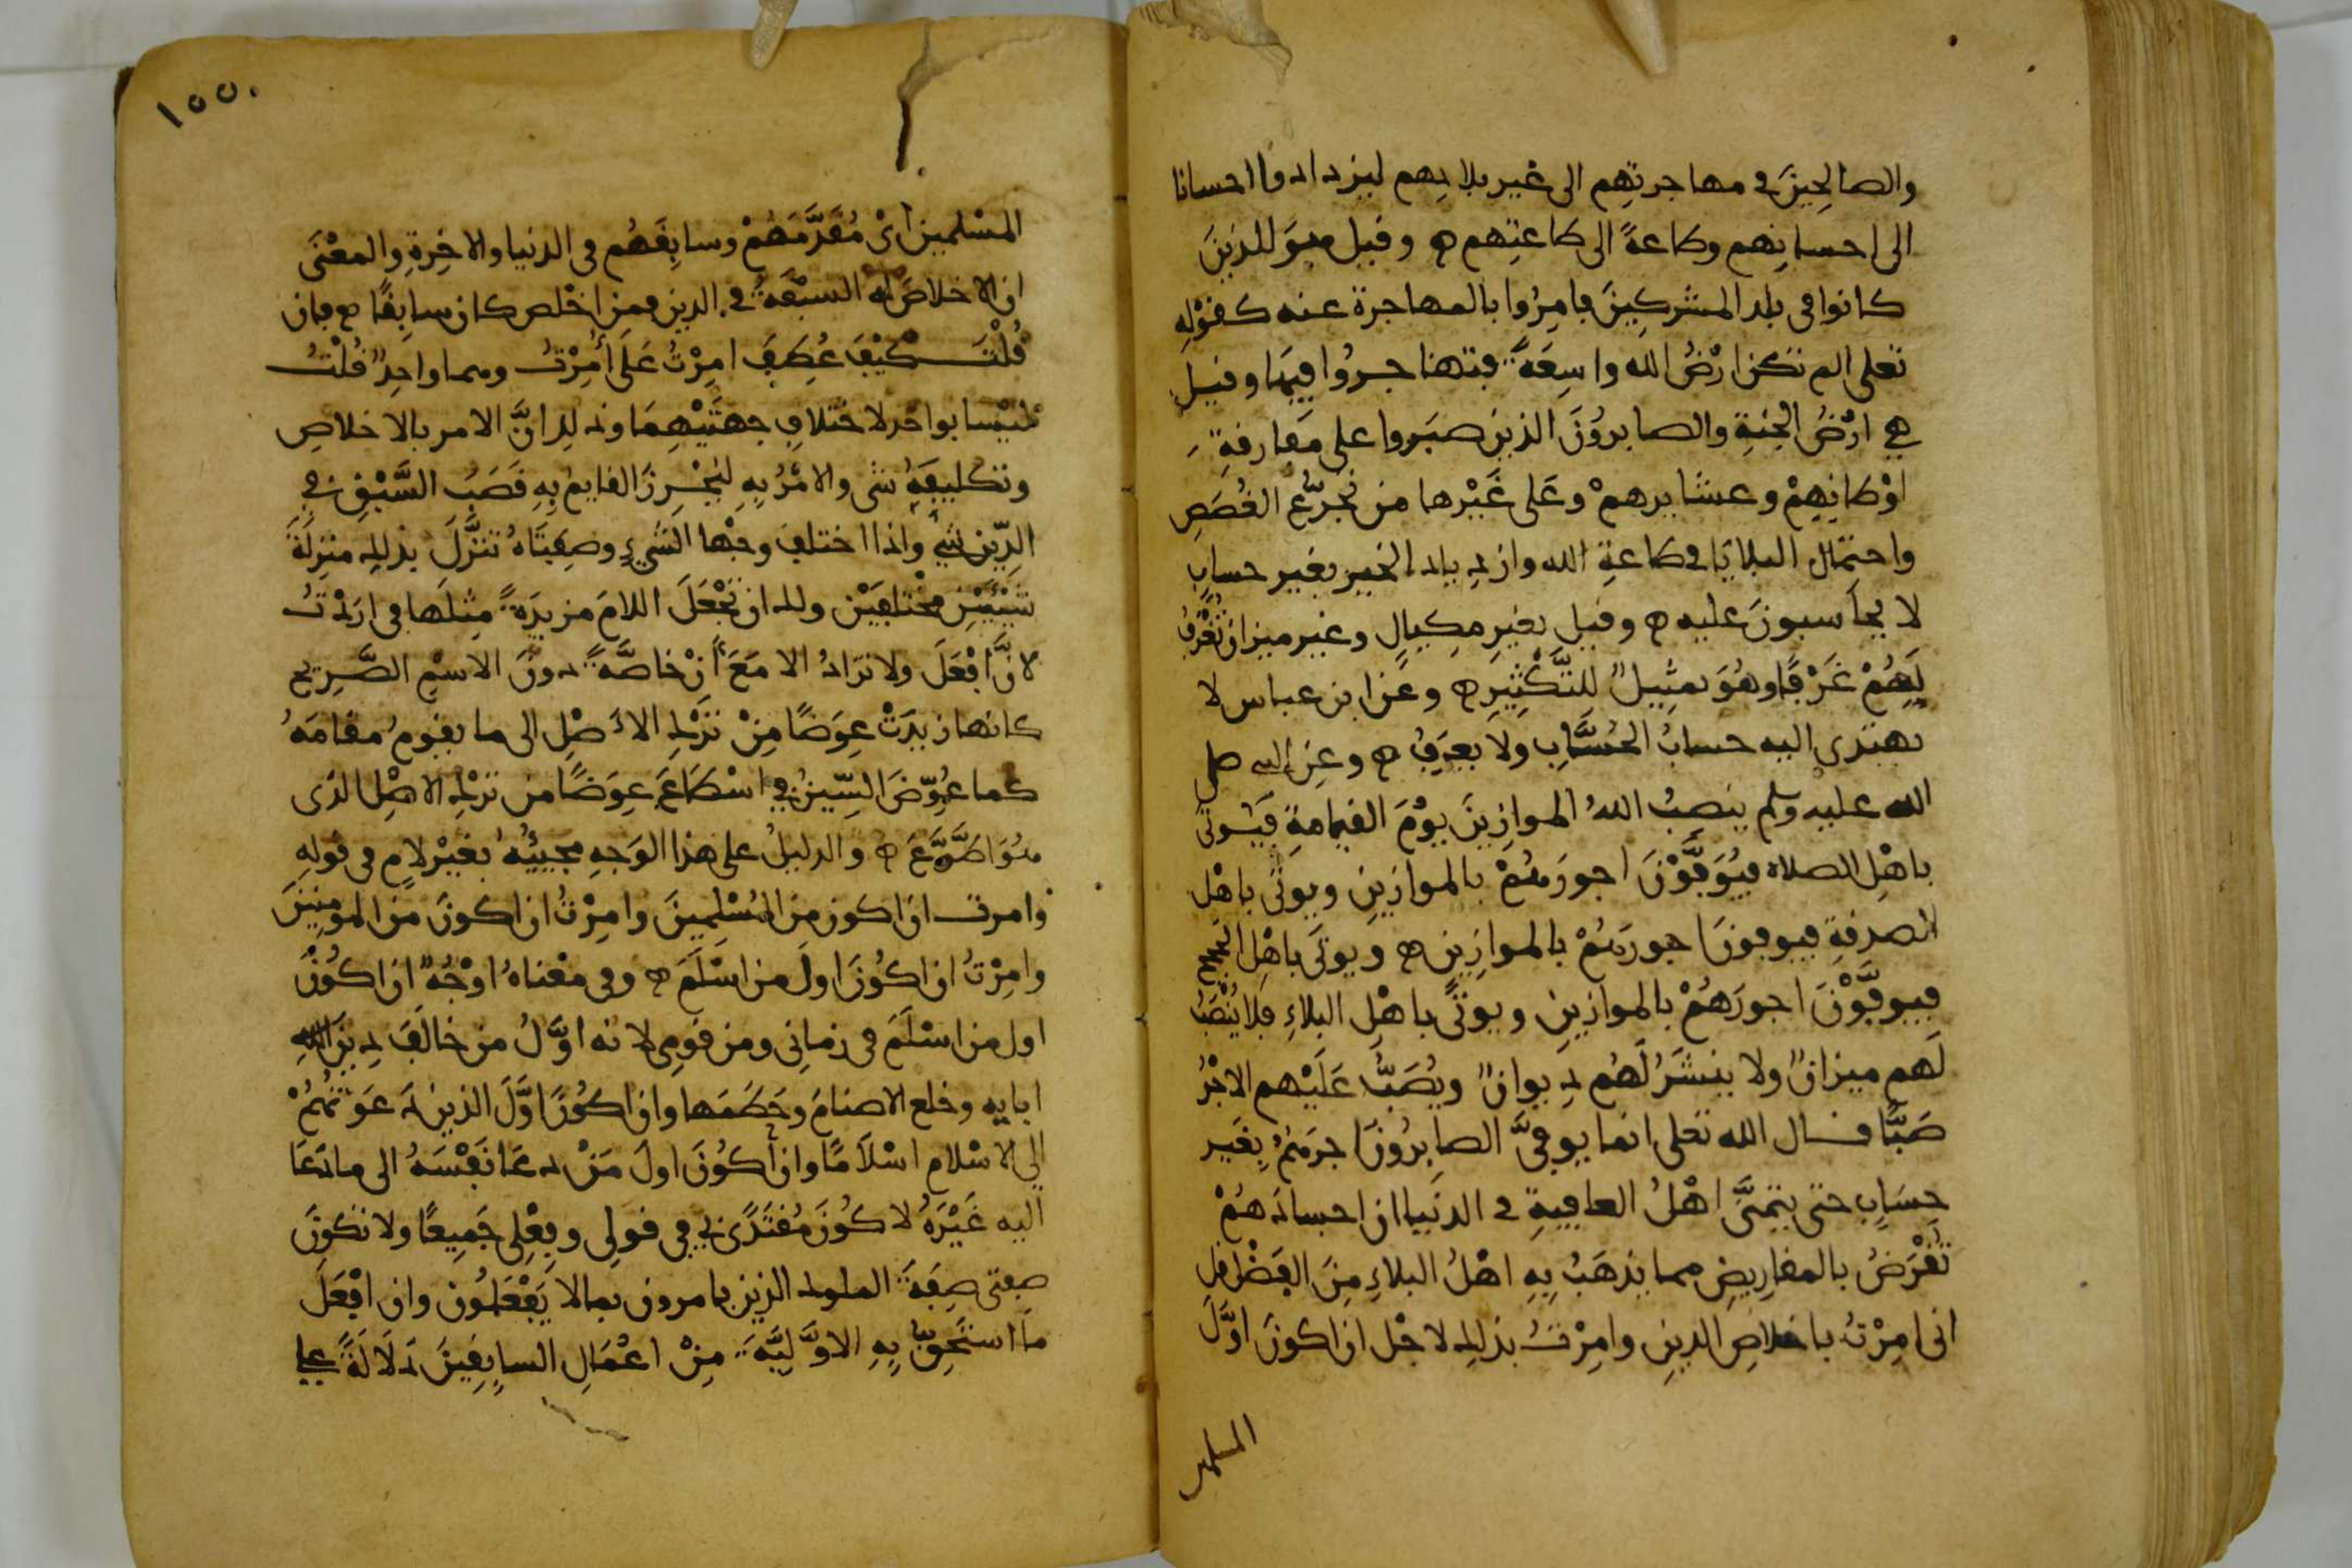 والصالحينَ في مهاجرتِهِم الى غير بلادِهم ليزدادوا احسانا
الى احسانِهم وطاعةً الى طاعتِهم وقيل هوَ للذينَ
كانوا في بلد المشركينَ فامِرُوا بالمهاجرة عنه كقوْلِهِ
تعلى الم تكن ارْضُ الله واسِعَةً فتهاجروا فيهَا وقيل
هي ارْضُ الجنةِ والصابروُنَ الذين صبَروا على مَفارقةِ
اوْطانِهِمْ وعشايرهمْ وعَلى غَيْرها من تجَرُّع الغُصَصِ
واحتمال البلايَا في طاعةِ الله وازدياد الخير بغير حسابٍ
لا يحاَسبونَ عليه وقيل بغيرِ مِكيالٍ وغير ميزان يُغْرَفُ
لَهُمْ غَرْفًا وهُوَ تمثِيلٌ لِلتَّكْثِيرِ وعَن ابن عباس لا
يهتدى اليه حسابُ الحُسَّابِ ولا يعرَفُ وعنِ النبى صلى
الله عليه وسلم ينصِبُ اللهُ الموازِينَ يوْمَ القيامةِ فيُوتَى
باهْلِ الصلاة فيُوَفَّوْنَ اجورَهُمْ بالموازينِ ويوتَى باهْل
الصدقةِ فيوفونَ اجورَهُمْ بالموازِينِ ويوتَى باهْلِ الحج
فيوفَّوْنَ اجورَهُمْ بالموازينِ ويوتَى باهْلِ البلاءِ فلا يُنْصَبُ
لَهم ميزانٌ ولا ينشَرُ لَهُم دِيوانٌ ويُصَبُّ عَلَيْهم الاجْرُ
صَبًّا قال الله تعلى انما يوفىَّ الصابرُونَ اجرَهُمْ بِغَير
حسَابٍ حتى يتمنَّى اهْلُ العافيةِ في الدنيا ان اجسادَهُمْ
تُقْرَضُ بالمقارِيضِ مما يذهَبُ بِهِ اهْلُ البلاءِ مِنَ الفَضْل قل
انى امِرْتُ باخلاصِ الدينِ وامِرْتُ بذلك لاجْل ان اكونَ اوَّلَ
المسلمين
١٥٥٠
المسْلمين اىْ مُقدَّمَهُمْ وسابِقَهُم في الدنيا والاخِرةِ والمعْنَى
ان الاخلاصَ له السبْقَةُ في الدين فمن اخْلص كان سابِقًا فان
قُلْتَ كيْفَ عُطِفَ امِرْتُ عَلَى أُمِرْتُ وهما واحِدٌ قُلْتُ
ليْسا بواحد لاختلافِ جهتَيْهِمَا وذلك انَّ الامر بالاخلاصِ
وتكليفَهُ شى والامْرُ بِهِ ليُحْرِزَ القايم بِهِ قَصَبَ السَّبْقِ في
الدّين شىٌ واذا اختلف وجْها الشىءِ وصِفتَاهُ تنزَّلَ بذلك منزِلةَ
شَيْئَيْنِ مخْتلفَيْن ولك ان تجْعَلَ اللامَ مزيدَةً مِثلَها في ارَدْتُ
لانَّ افْعَلَ ولا تزادُ الا مَعَ أَنْ خاصَّةً دونَ الاسْمِ الصَّريح
كانها زيدَتْ عِوَضًا مِنْ تَرْكِ الاَصْلِ الى ما يقومُ مقامَهُ
كما عُوِّضَ السِّينُ في اسْطَاعَ عِوَضًا من ترْكِ الاصْلِ الذى
هُوَ اَطْوَعَ والدليلُ على هذا الوَجهِ مجيئُهُ بغيْر لامٍ في قولِهِ
وامرت ان اكون من المُسْلمينَ وامِرْتُ ان اكونَ من المومنِينَ
وامِرْتُ ان اكُونَ اولَ من اسْلَمَ وفي معْناهُ اوْجُهٌ ان اكُونَ
اول من اسْلَمَ في زمانِى ومن قومِى لانه اوَّلُ من خالَفَ دِينَ
ابايِهِ وخلع الاصنامَ وحَطَمَها وان اكُونَ اوَّلَ الذين دَعَوْتُهُمْ
الى الاسْلام اسْلاَمًا وان أكُونَ اولَ مَنْ دعَا نَفْسَهُ الى ما دَعَا
اليه غَيْرَهُ لاكُونَ مُقتَدًى بى في قولِى وفِعْلِى جَمِيعًا ولا تكونَ
صفتى صِفةَ الملوك الذين يامرون بما لا يَفْعَلُون وان افْعَلَ
ما استَحِقُّ بِهِ الاوَّلِيَّةَ مِنْ اعْمَالِ السابِقِينَ دَلاَلَةً على